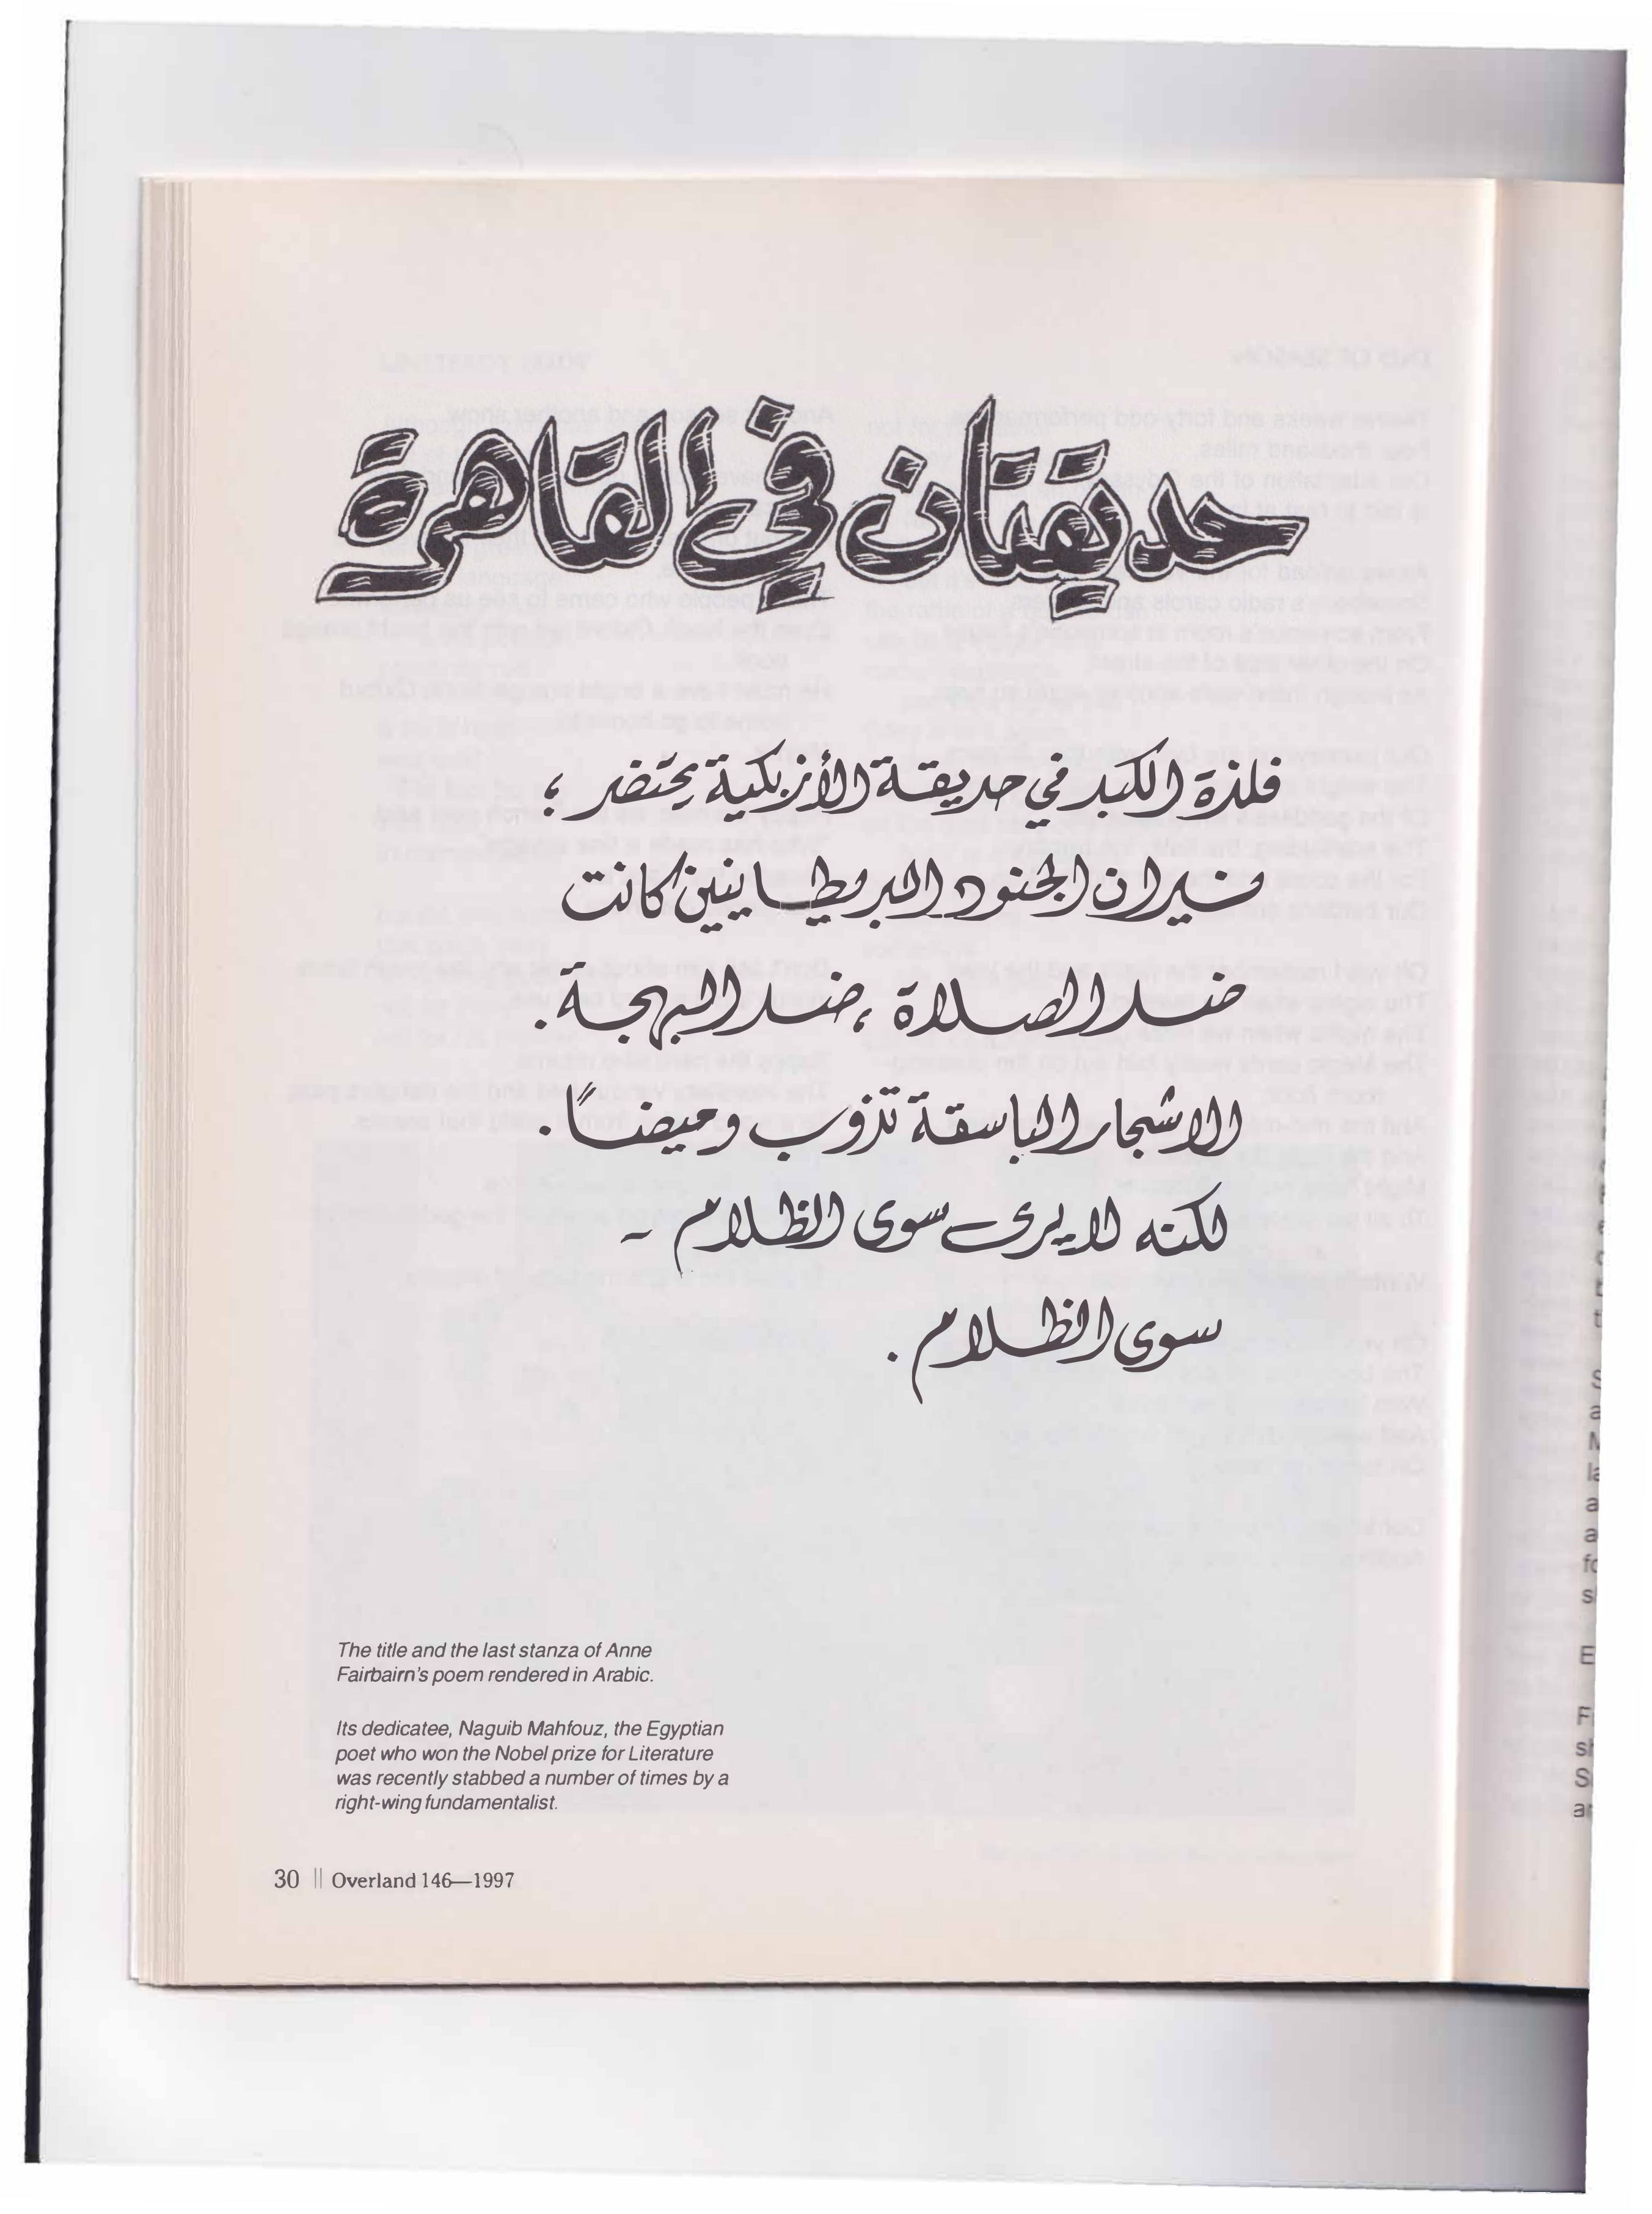 حديقتان في القاهرة
فلذة الكبد في حديقة الأزبكية يحتضر ؛
نيران الجنود البريطانيين كانت
ضد الصلاة ، ضد البهجة .
الاشجار الباسقة تذوب وميضاً .
لكنه لا يرى سوى الظلام -
سوى الظلام .
The title and the last stanza of Anne
Fairbairn's poem rendered in Arabic.
Its dedicatee, Naguib Mahfouz, the Egyptian
poet who won the Nobel prize for Literature
was recently stabbed a number of times by a
right-wing fundamentalist.
30 || Overland 146—1997